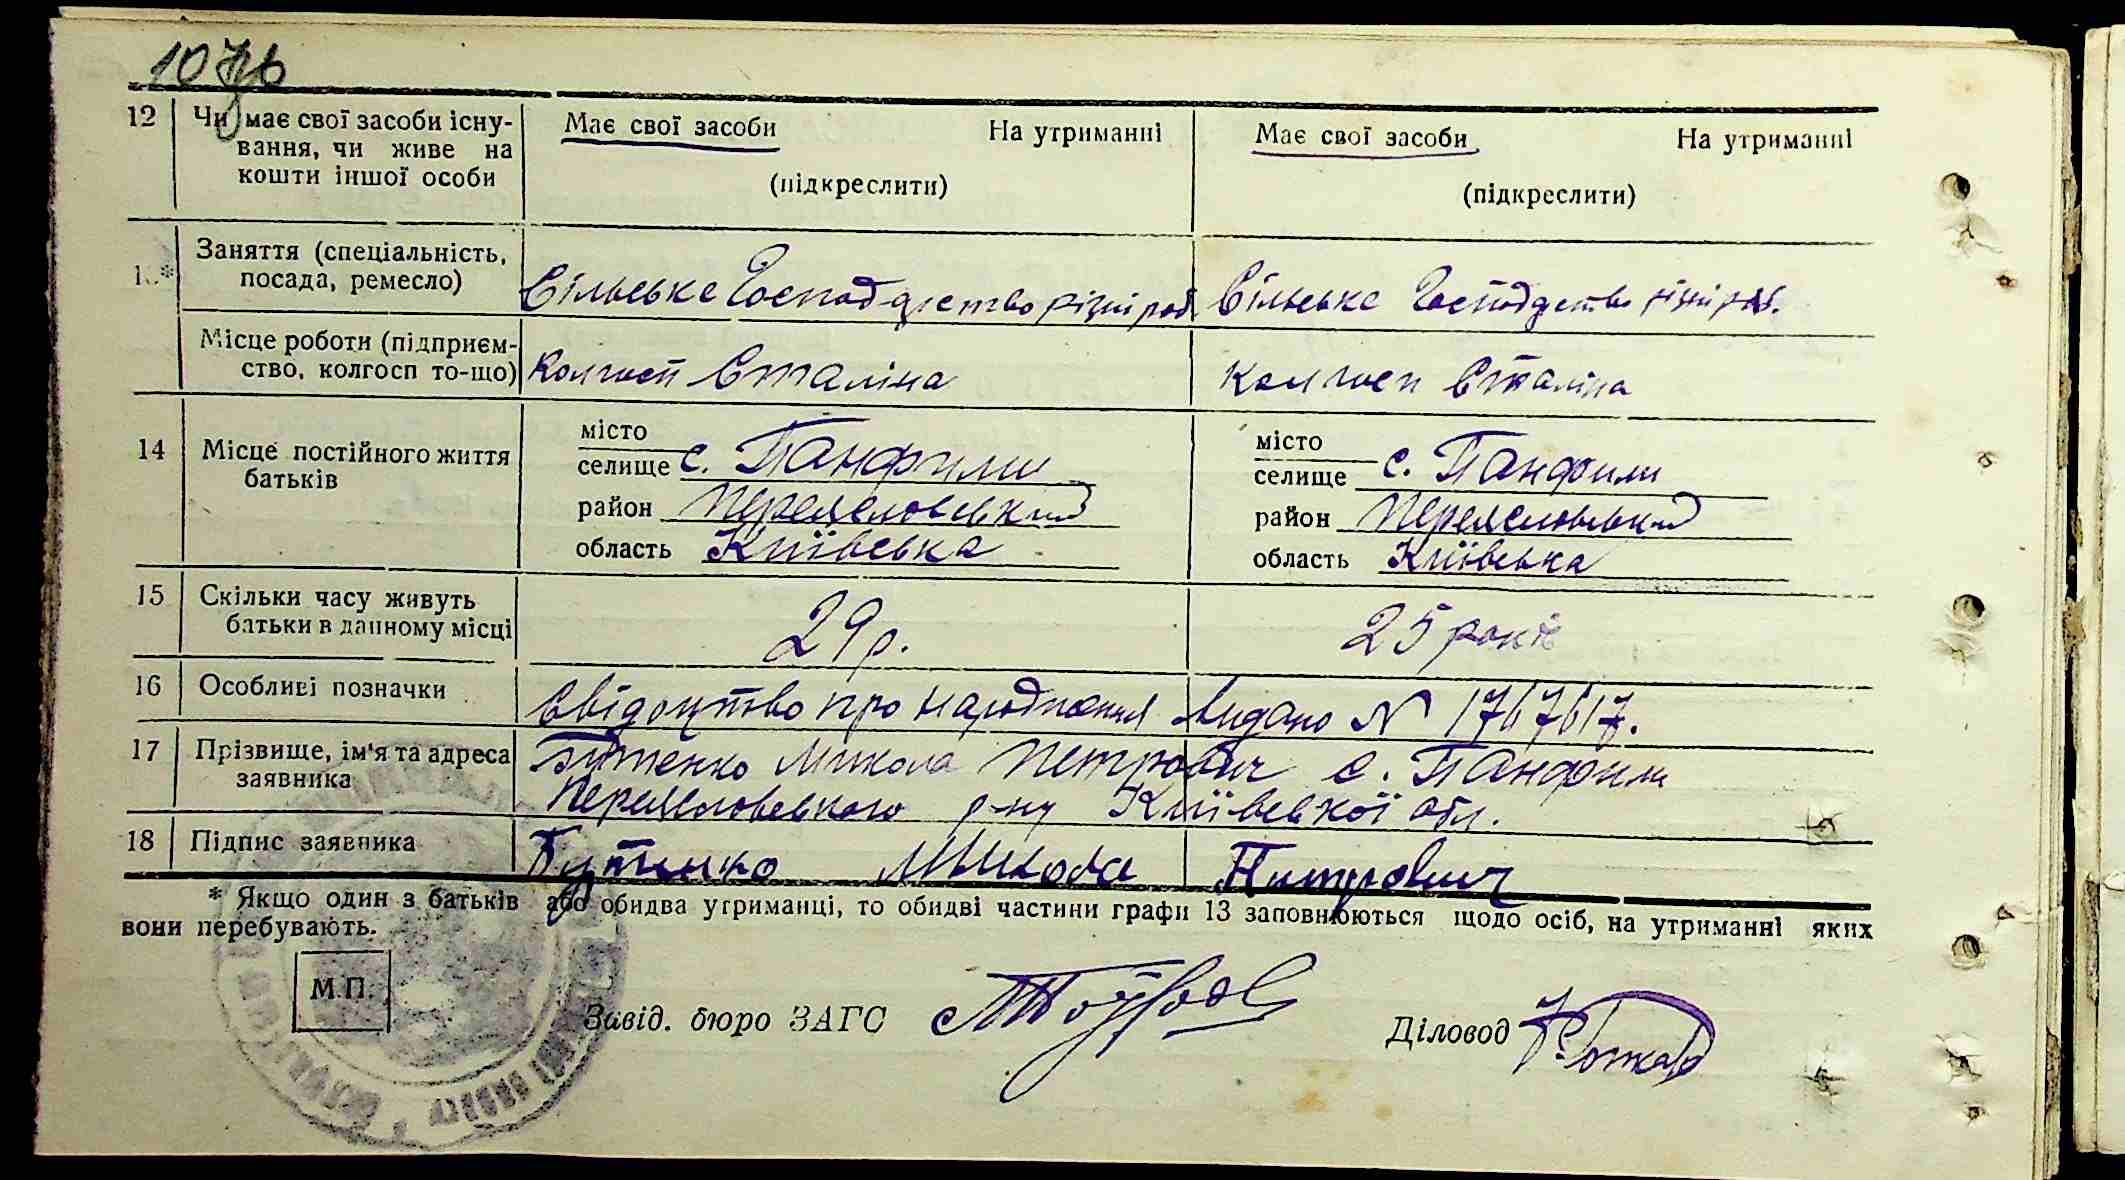 107 зв
12 Чи має свої засоби існу- Має свої засоби На утриманні Має свої засоби На утриманні
вання, чи живе на
кошти іншої особи (підкреслити) (підкреслити)
13* Заняття (спеціальність,
посада, ремесло) Сільське Господарство різні роб Сільське Господарство різні роб.
Місце роботи (підприєм-
ство, колгосп то-що) Колгосп Сталіна Колгосп Сталіна
14 Місце постійного життя місто місто
батьків селище с. Панфили селище с. Панфили
район Переяславський район Переяславський
область Київська область Київська
15 Скільки часу живуть
батьки в данному місці 29 р. 25 років
16 Особливі позначки Свідоцтво про народження видано № 1767617.
17 Прізвище, ім'я та адреса Бутенко Микола Петрович с. Панфили
заявника Переяславського р-ну Київської обл.
18 Підпис заявника Бутенко Микола Петрович
* Якщо один з батьків або обидва утриманці, то обидві частини графи 13 заповнюються щодо осіб, на утриманні яких
вони перебувають.
М.П.
Завід. бюро ЗАГС Діловод